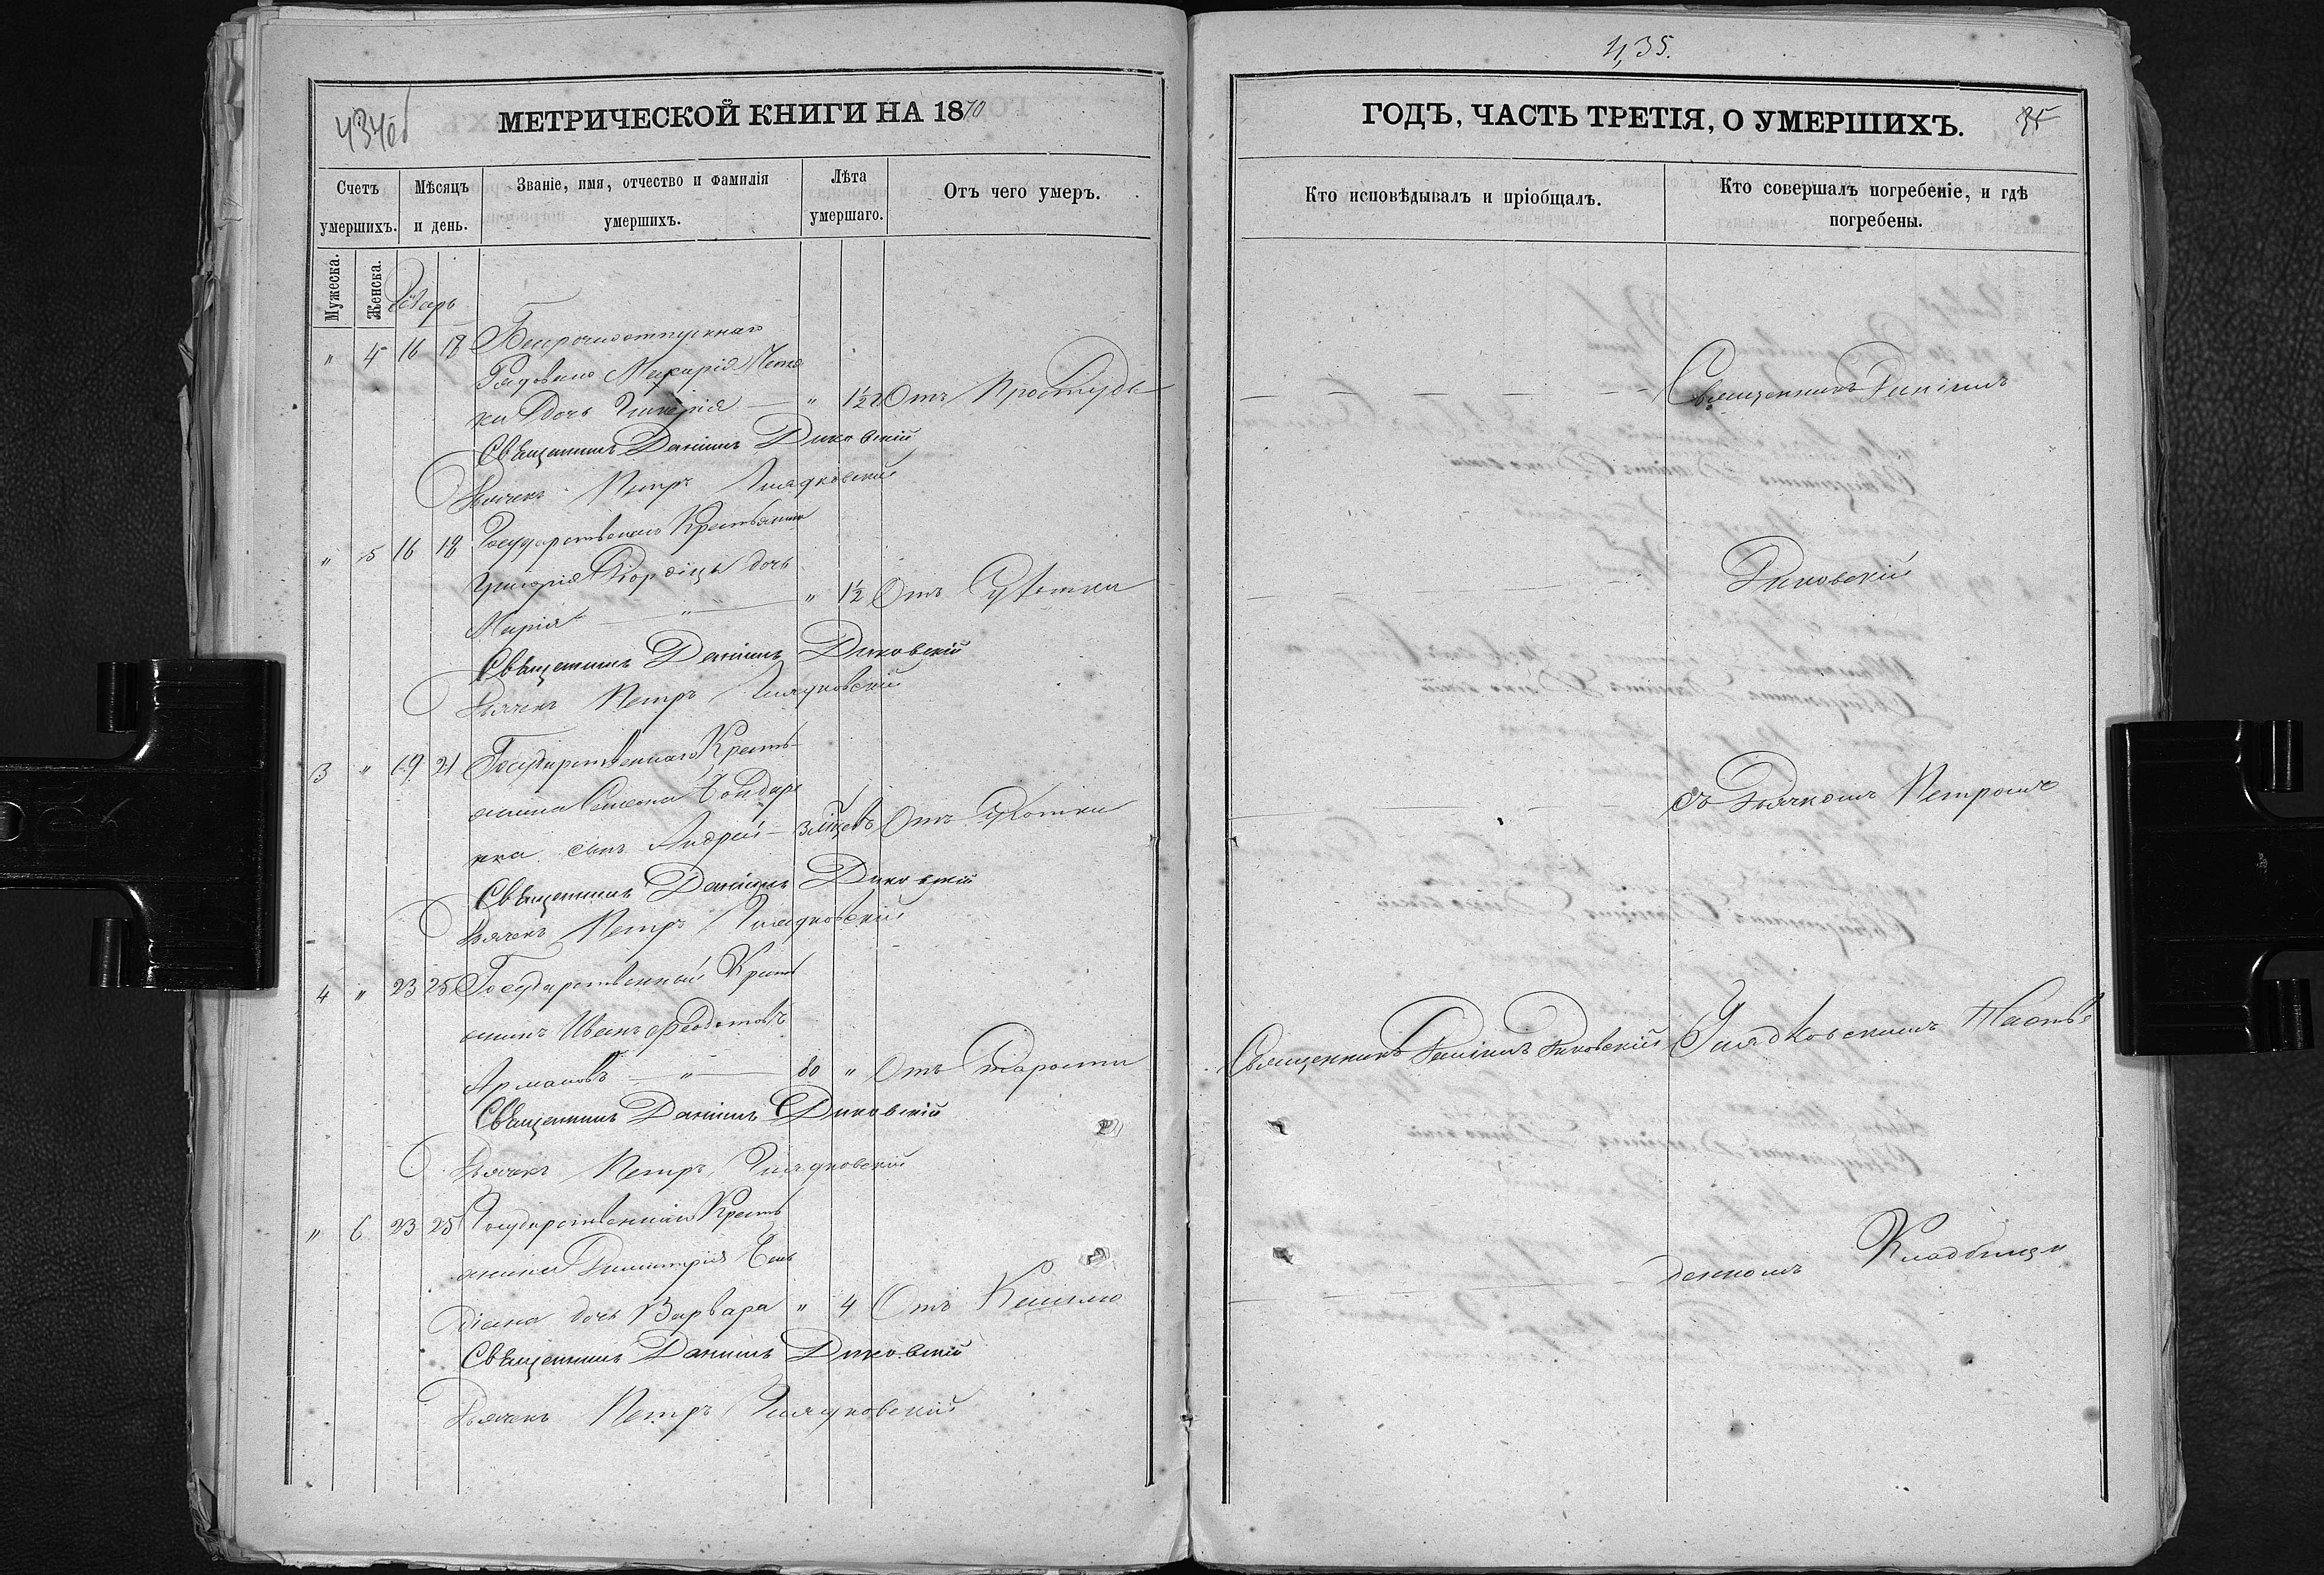 434об
МЕТРИЧЕСКОЙ КНИГИ НА 1870
Счетъ умершихъ.
Мѣсяцъ и день.
Званіе, имя, отчество и фамилія умершихъ.
Лѣта умершаго.
Отъ чего умеръ.
Мужеска.
Женска.
" 4 16 18 Безсрочноотпускнаго
Рядоваго Макарія
дочь — " 1½ Отъ Простуды
Священникъ Даніилъ Диковскій
Дьячекъ Петръ Гнядковскій
" 5 16 18 Государственнаго Крестьянина
дочь
Марія — " — " 1½ Отъ Сухотки
Священникъ Даніилъ Диковскій
Дьячекъ Петръ Гнядковскій
3 " 19 21 Государственнаго Кресть-
янина Семена Бондаре
нка сынъ Андрей — 3 мѣсяцевъ Отъ Сухотки
Священникъ Даніилъ Диковскій
Дьячекъ Петръ Гнядковскій
4 " 23 25 Государственный Кресть
янинъ Иванъ Феодотовъ
Армановъ — " — 80 " Отъ Старости
Священникъ Даніилъ Диковскій
Дьячекъ Петръ Гнядковскій
" 6 23 25 Государственнаго Кресть
янина Димитрія
дочь Варвара " 4 Отъ Кашлю
Священникъ Даніилъ Диковскій
Дьячекъ Петръ Гнядковскій
435.
ГОДЪ, ЧАСТЬ ТРЕТІЯ, О УМЕРШИХЪ.
35
Кто исповѣдывалъ и пріобщалъ.
Кто совершалъ погребеніе, и гдѣ погребены.
Священникъ Даніилъ
Диковскій
съ Дьячкомъ Петромъ
Священникъ Даніилъ Диковскій
Гнядковскимъ На
Кладбищи